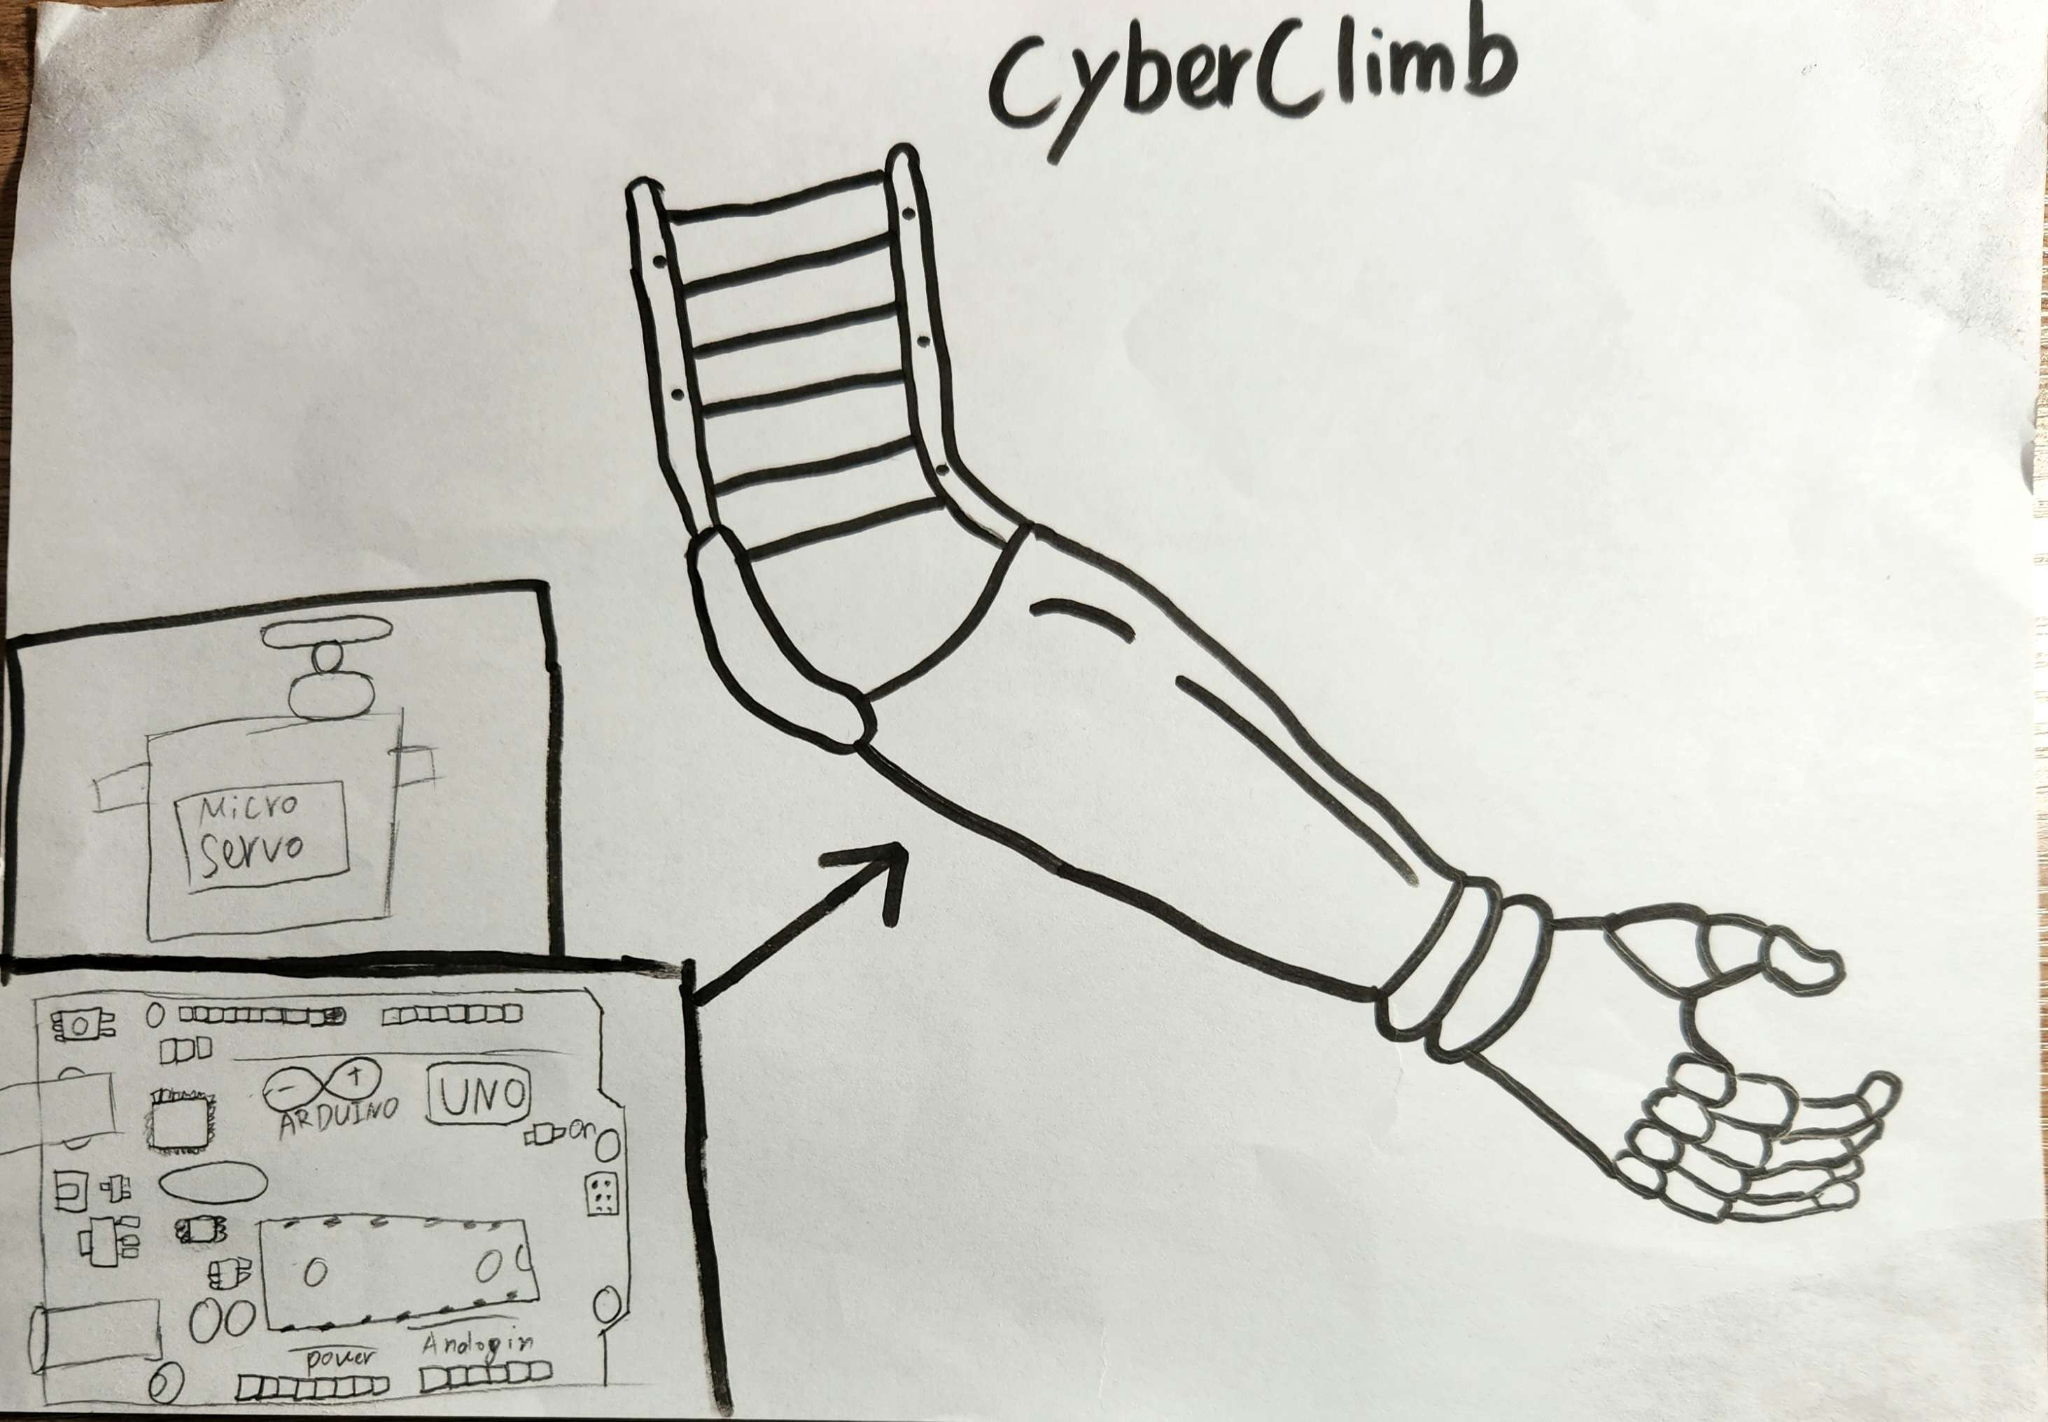 CyberClimb
Micro
Servo
- +
ARDUINO
UNO
on
power
Analog in